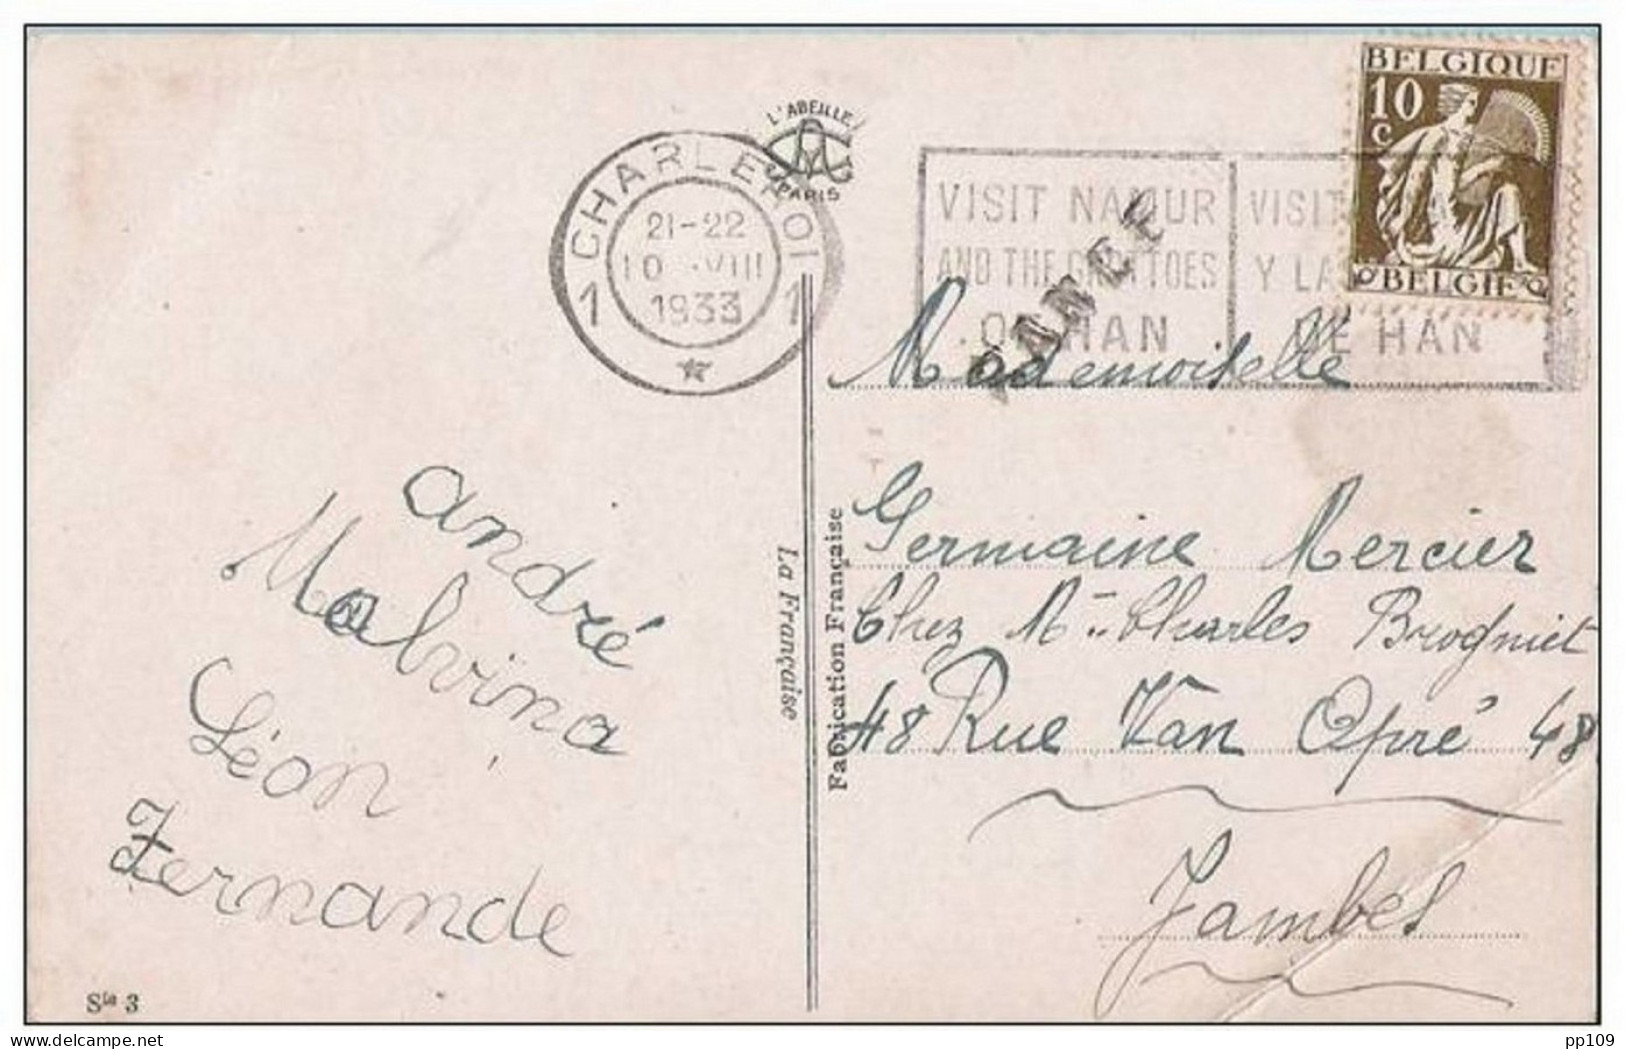 L'ABEILLE
PARIS
1 CHARLEROI 1
21-22
10 VIII
1933
VISIT NAMUR
AND THE GROTTOES
OF HAN
VISIT
Y LA
DE HAN
BELGIQUE
10
C
BELGIE
Mademoiselle
Germaine Mercier
Chez Mr Charles Brogniet
48 Rue Van Opré 48
Jambes
André
Malvina
Léon
Fernande
La Française
Fabrication Française
Sie 3
pp109